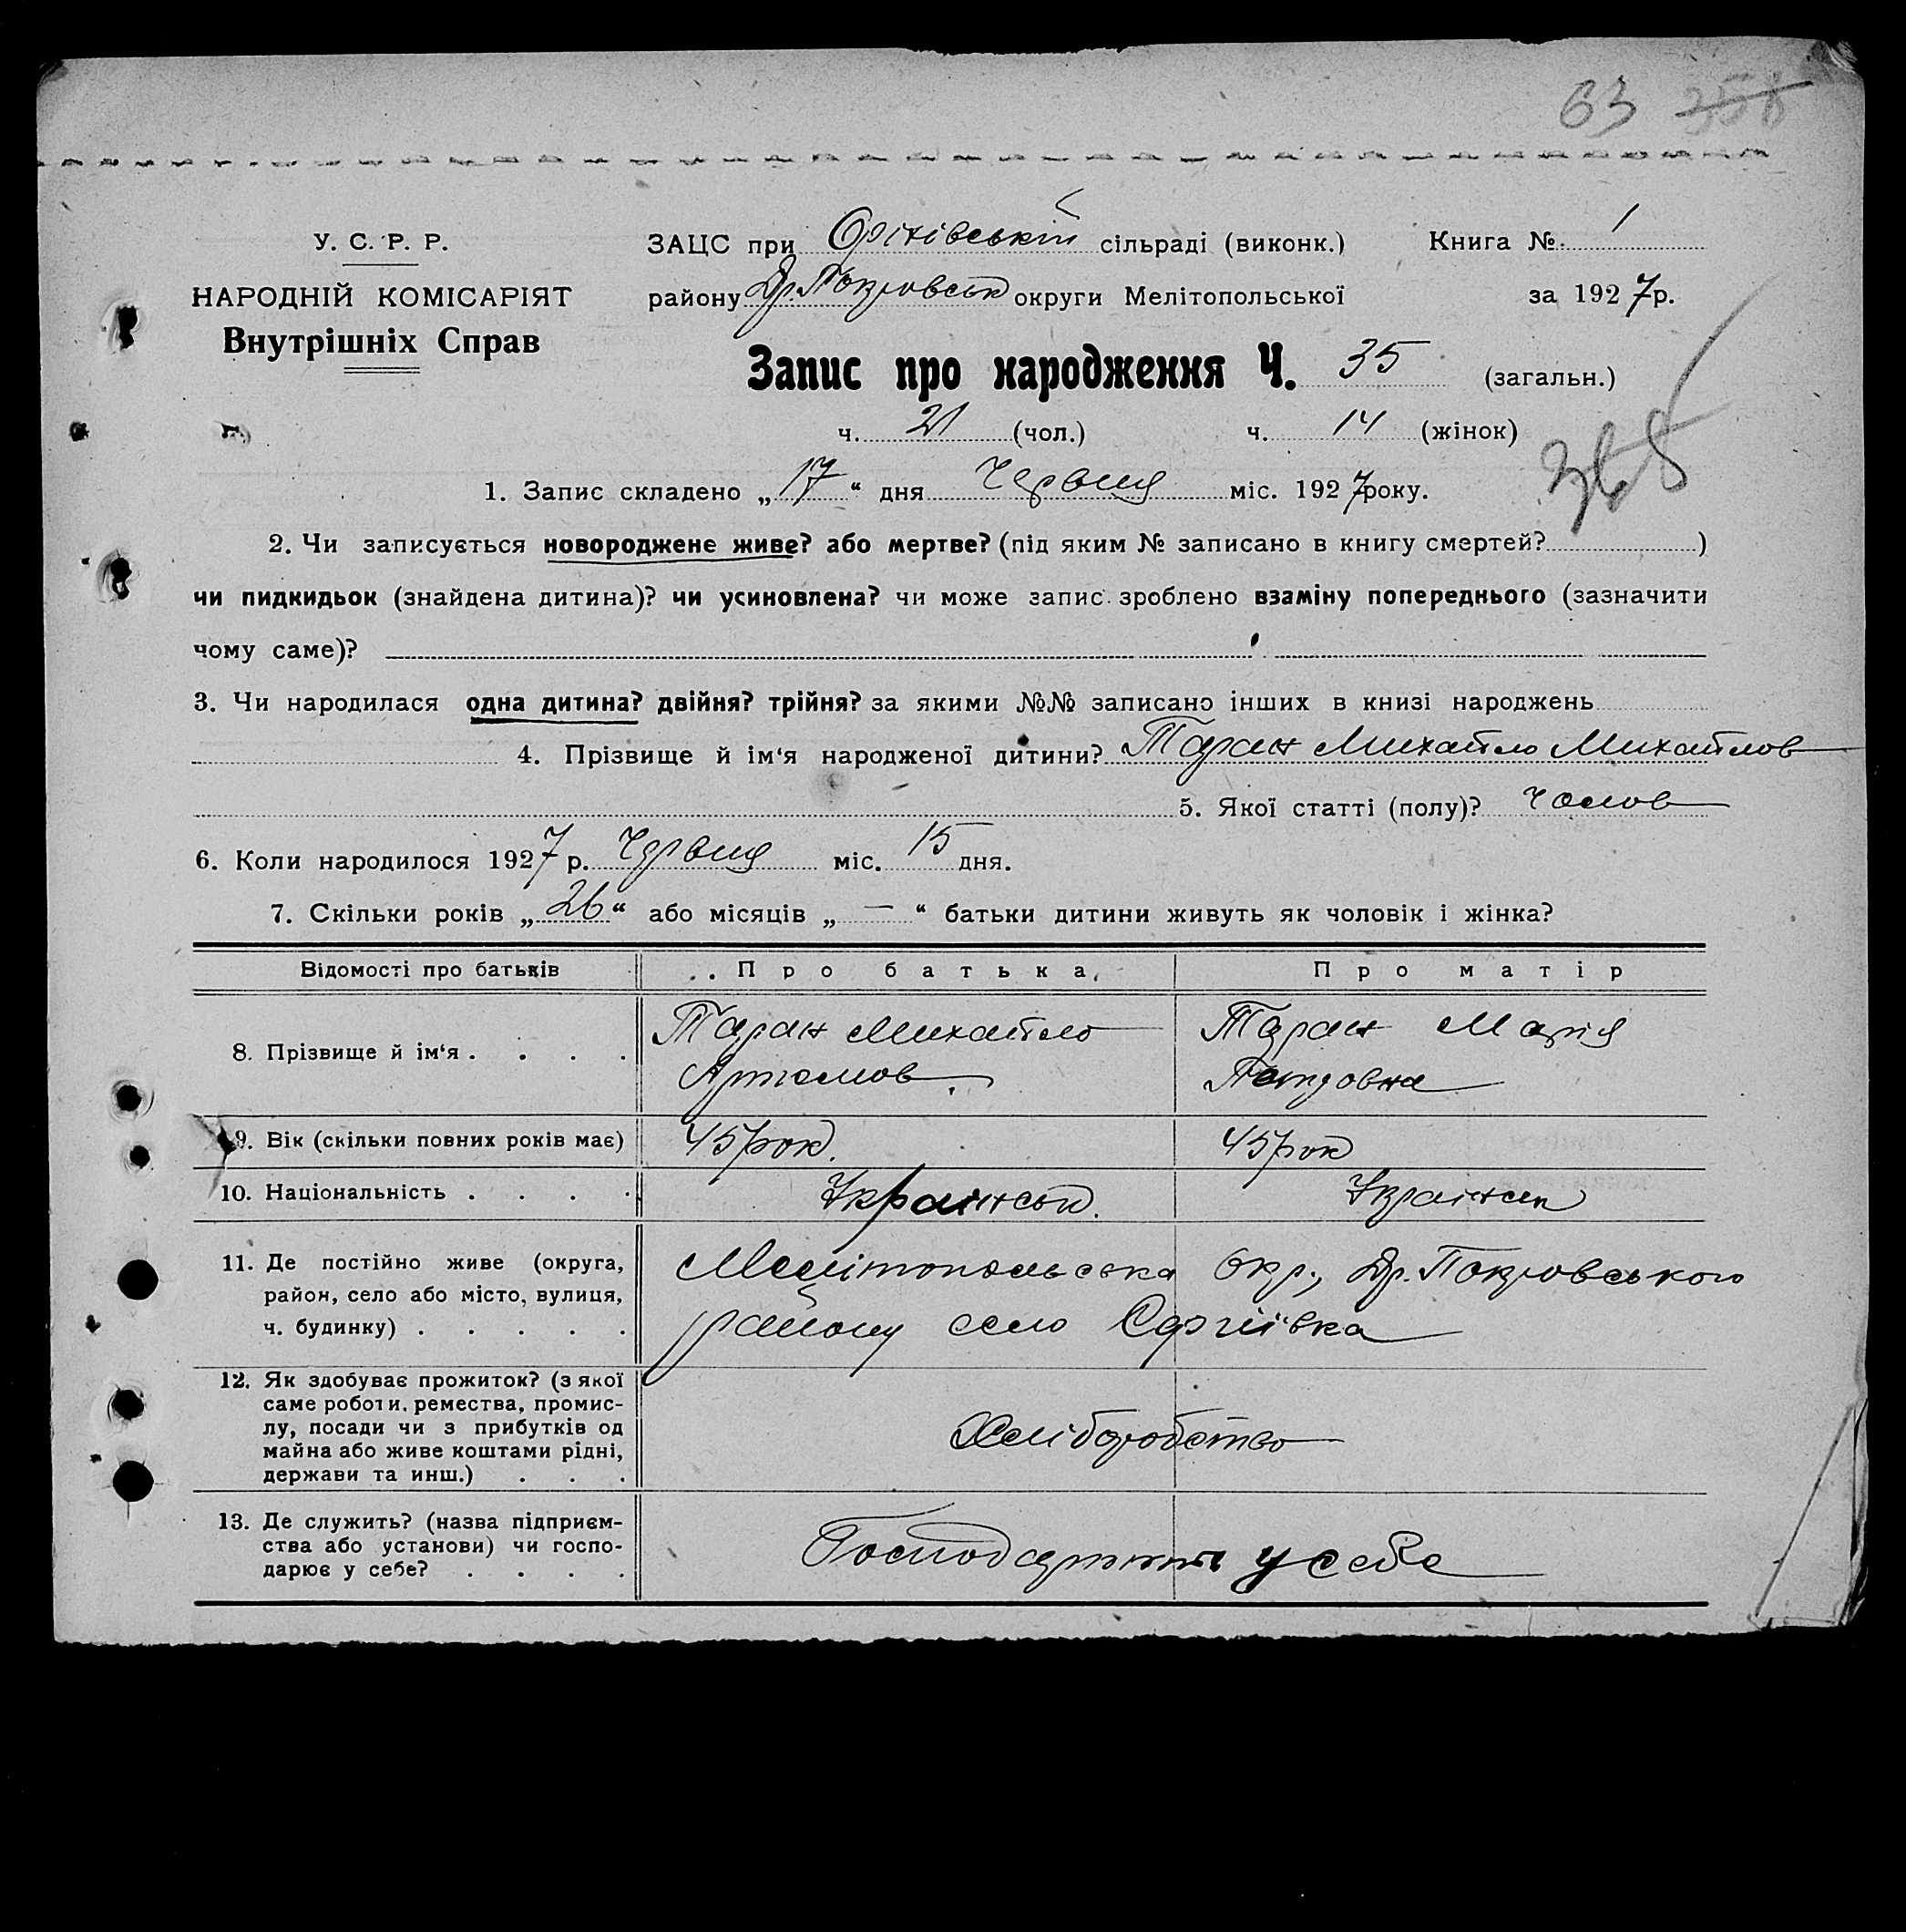 63 358
У. С. Р. Р.
НАРОДНІЙ КОМІСАРІЯТ
Внутрішніх Справ
ЗАЦС при Оріхівській сільраді (виконк.) Книга № 1
району Др. Покровськ округи Мелітопольської за 1927 р.
Запис про народження Ч. 35 (загальн.)
ч. 21 (чол.) ч. 14 (жінок)
1. Запис складено „17“ дня Червня міс. 1927 року.
2. Чи записується новороджене живе? або мертве? (під яким № записано в книгу смертей? )
чи пидкидьок (знайдена дитина)? чи усиновлена? чи може запис зроблено взаміну попереднього (зазначити
чому саме)?
3. Чи народилася одна дитина? двійня? трійня? за якими №№ записано інших в книзі народжень
4. Прізвище й ім‘я народженої дитини? Таран Михайло Михайлов
5. Якої статті (полу)? чолов
6. Коли народилося 1927 р. Червня міс. 15 дня.
7. Скільки років „26“ або місяців „—“ батьки дитини живуть як чоловік і жінка?
Відомості про батьків Про батька Про матір
8. Прізвище й ім‘я . . . . Таран Михайло Таран Марія
Артемов. Петровна
9. Вік (скільки повних років має) 45 рок. 45 рок
10. Національність . . . . Українськ. Українськ
11. Де постійно живе (округа,
район, село або місто, вулиця,
ч. будинку) . . . . .
Мелітопольська окр., Др. Покровського
району село Сергіївка
12. Як здобуває прожиток? (з якої
саме роботи, ремества, промис-
лу, посади чи з прибутків од
майна або живе коштами рідні,
держави та инш.) . . .
Хліборобство
13. Де служить? (назва підприєм-
ства або установи) чи госпо-
дарює у себе? . . . .
у себе